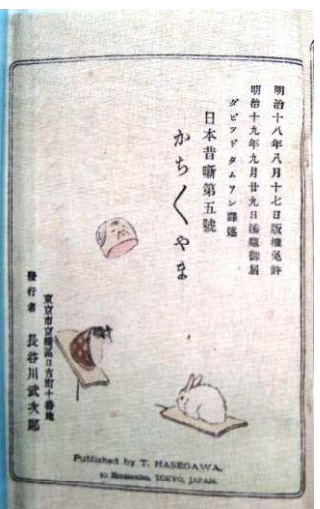 明治十八年八月十七日版權免許
明治十九年九月廿九日添題御届
ダビッドタムソン譯述
日本昔噺第五號
かち〱やま
東京市京橋區日吉町十番地
發行者 長谷川武次郎
Published by T. HASEGAWA,
TOKYO, JAPAN.